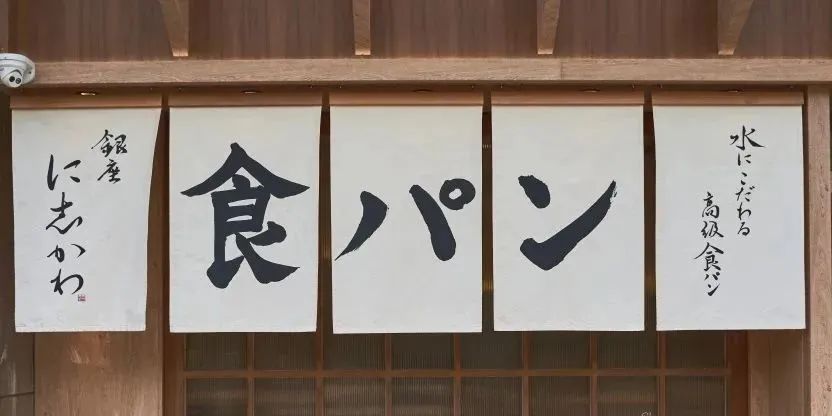 銀座
に志かわ
食パン
水にこだわる
高級食パン